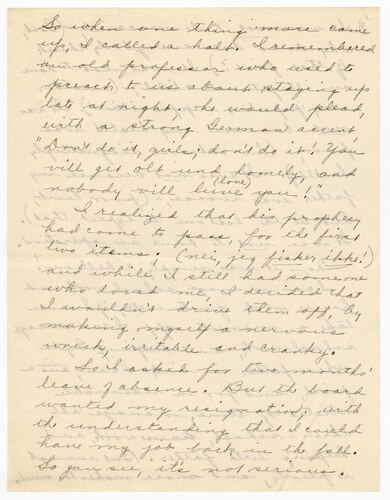 So when one thing more came
up, I called a halt. I remembered
an old professor who used to
preach to us about staying up
late at night; he would plead,
with a strong German accent
"Don't do it, girls; don't do it! You
vill get olt und homely, and
nobody vill luve you!"
(love)
I realized that his prophecy
had come to pass, for the first
two items. (nei, jeg fisker ikke!)
and while I still had someone
who loved me, I decided that
I wouldn't drive them off, by
making myself a nervous
wreck, irritable and cranky.
So I asked for two months'
leave of absence. But the board
wanted my resignation, with
the understanding that I could
have my job back in the fall.
So you see, it's not serious.